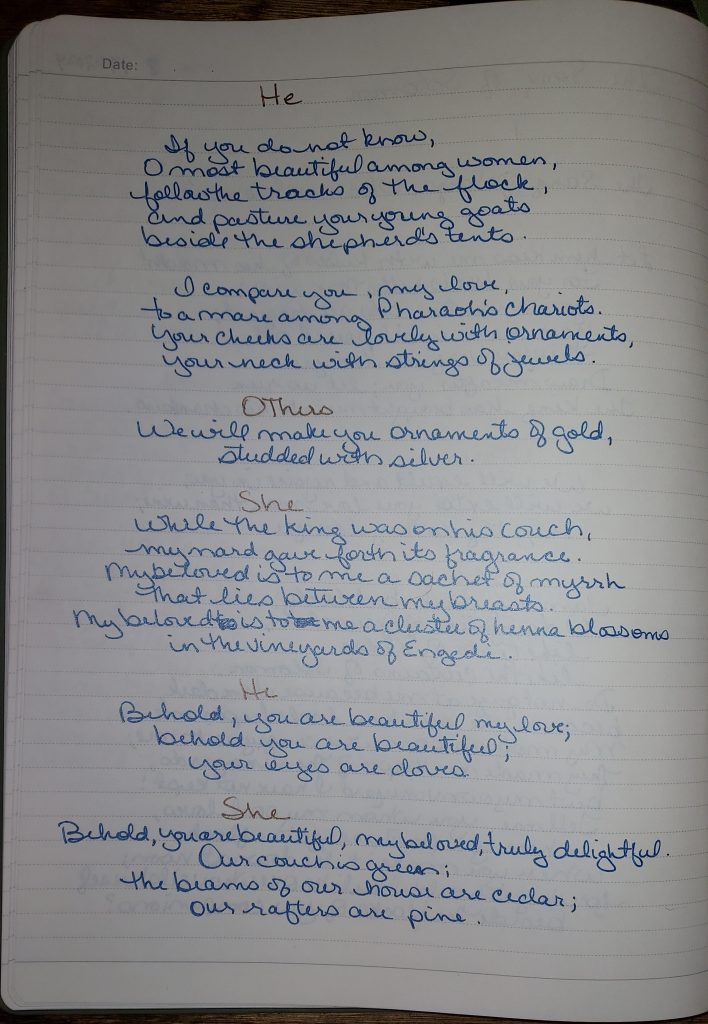 Date:
He
If you do not know,
O most beautiful among women,
follow the tracks of the flock,
and pasture your young goats
beside the shepherd's tents.
I compare you, my love,
to a mare among Pharaoh's chariots.
Your cheeks are lovely with ornaments,
your neck with strings of jewels.
Others
We will make you ornaments of gold,
studded with silver.
She
While the king was on his couch,
my nard gave forth its fragrance.
My beloved is to me a sachet of myrrh
that lies between my breasts.
My beloved is to me a cluster of henna blossoms
in the vineyards of Engedi.
He
Behold, you are beautiful my love;
behold you are beautiful;
your eyes are doves.
She
Behold, you are beautiful, my beloved, truly delightful.
Our couch is green;
the beams of our house are cedar;
our rafters are pine.